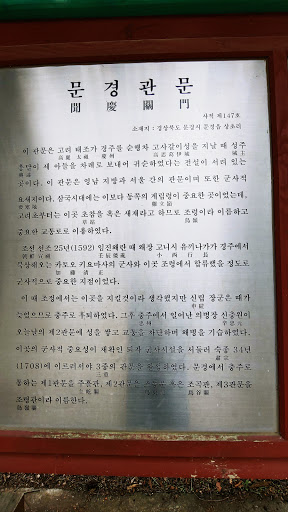 문경관문
聞慶關門
사적 제147호
소재지 : 경상북도 문경시 문경읍 상초리
이 관문은 고려 태조가 경주를 순행차 고사갈이성을 지날 때 성주
高麗 太祖 慶州 高思葛伊城 城主
세 아들을 차례로 보내어 귀순하였다는 전설이 서려 있는
곳이다. 이 관문은 영남 지방과 서울 간의 관문이며 또한 군사적
요새지이다. 한국시대에는 이보다 동쪽의 계립령이 중요한 곳이었는데,
鷄立嶺
고려초부터는 이곳 초점을 혹은 새재라고 하므로 조령이라 이름하고
草岾 鳥嶺
중요한 교통로로 이용하였다.
조선 선조 25년(1592) 임진왜란 때 왜장 고니시 유끼나가가 경주에서
朝鮮 宣祖 壬辰倭亂 小西行長
북상해오는 카토오 키요마사의 군사와 이곳 조령에서 합류했을 정도로
加藤清正
군사적으로 중요한 지점이었다.
이 때 조정에서는 이곳을 지킬것이라 생각했지만 신립 장군은 때가
申砬
늦었으므로 충주로 후퇴하였다. 그후 충주에서 일어난 의병장 신충원이
忠州
오늘날의 제2관문에 성을 쌓고 교통을 차단하며 왜병을 기습하였다.
이곳의 군사적 중요성이 재확인 되자 군사시설을 서둘러 숙종 34년
肅宗
(1708)에 이르러서야 3중의 관문을 완성하였다. 문경에서 충주로
통하는 제1관문을 주흘관, 제2관문을 혹은 조곡관, 제3관문을
鳥谷關
조령관이라 이름한다.
鳥嶺關